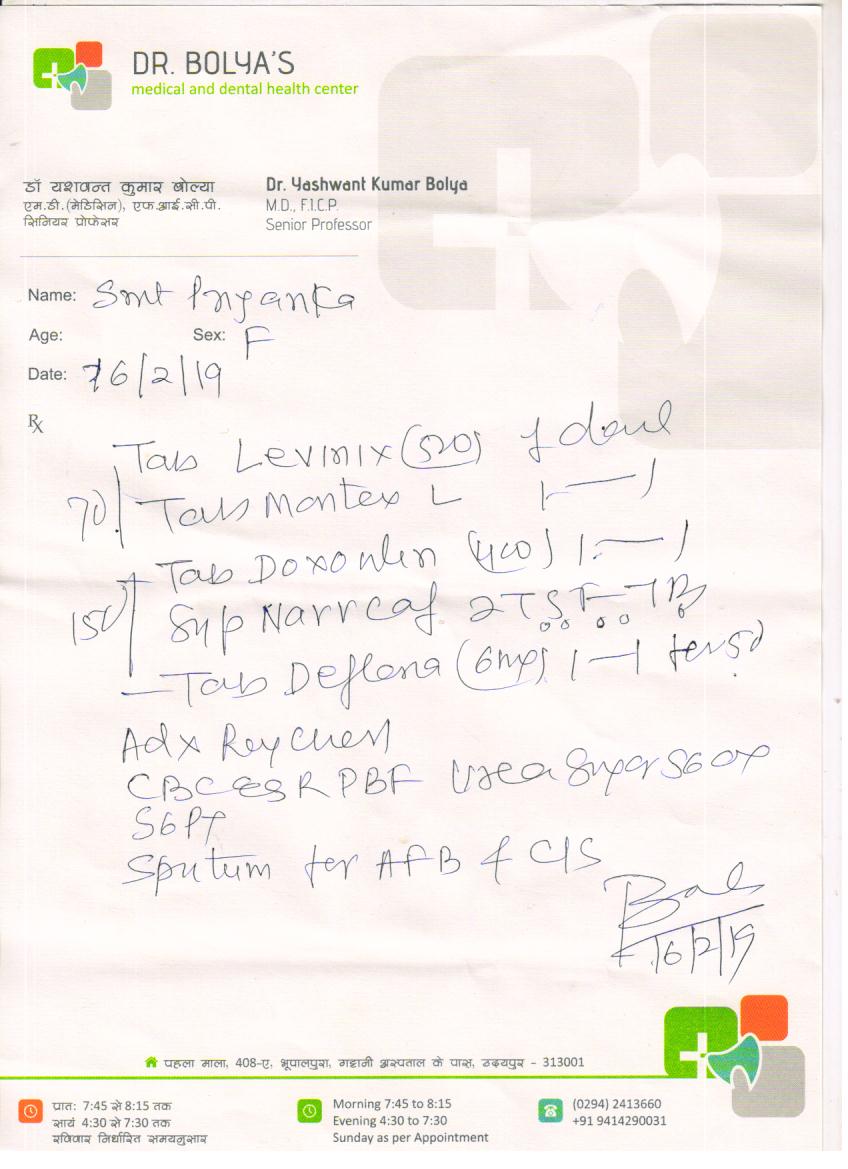 DR. BOLYA'S
medical and dental health center
डॉ यशवन्त कुमार बोल्या
एम.डी.(मेडिसिन), एफ.आई.सी.पी.
सिनियर प्रोफेसर
Dr. Yashwant Kumar Bolya
M.D., F.I.C.P.
Senior Professor
Name: Smt Priyanka
Age: Sex: F
Date: 16/2/19
Rx
Tab Levinix (500)
Tab Montex L 1-1
Tab Doxowin (400) 1-1
Syp 2 TSF
Tab Deflona (6mg) 1-1 for 5d
Adx Ray Chest
CBC ESR PBF Urea Sugar SGOT
SGPT
Sputum for AFB & C/S
16/2/19
पहला माला, 408-ए, भूपालपुरा, गट्टानी अस्पताल के पास, उदयपुर - 313001
प्रातः 7:45 से 8:15 तक
सायं 4:30 से 7:30 तक
रविवार निर्धारित समयनुसार
Morning 7:45 to 8:15
Evening 4:30 to 7:30
Sunday as per Appointment
(0294) 2413660
+91 9414290031